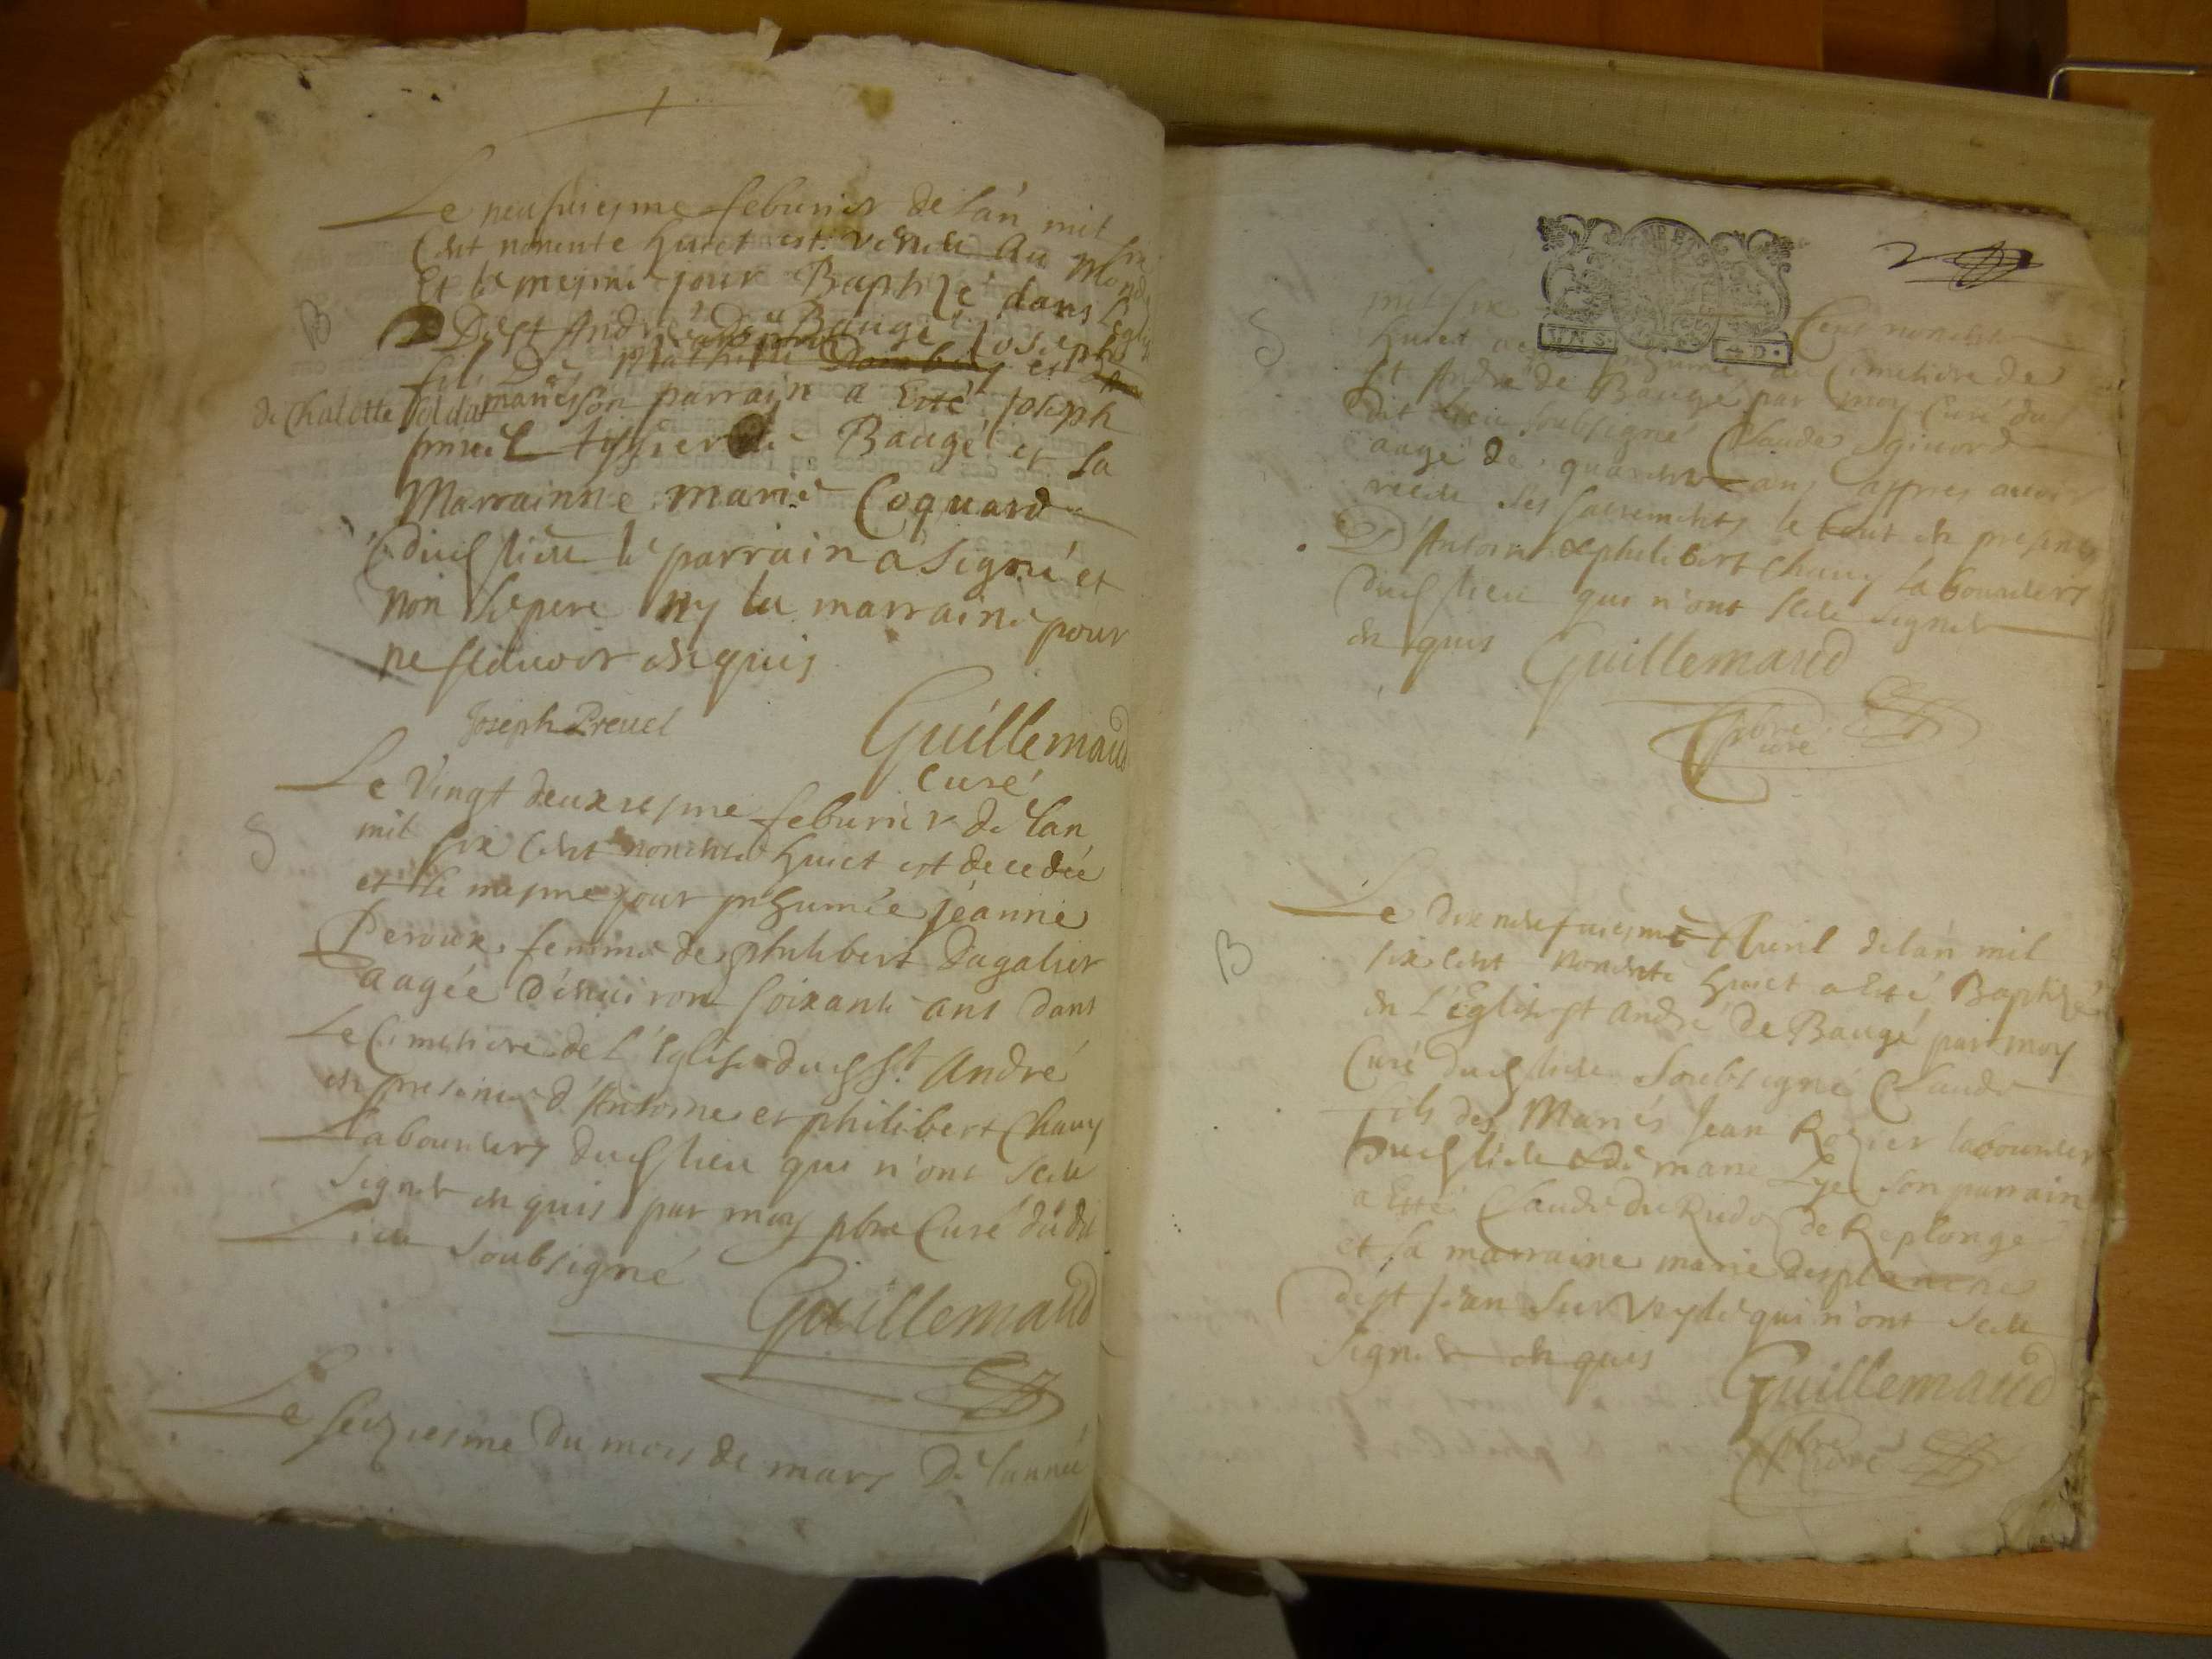 Le neufuiesme feburier de lan mil six
cent nonente huict est venu au monde
Et le mesme jour Baptizé dans L'eglise
B
De St André de Baugé Joseph
fils De
et
mariés son parrain a Esté Joseph
de Chalotte soldat
tissier de Baugé et sa
Marrainne marie Coquard
dud lieu le parrain a signé et
non le pere ny la marraine pour
ne scauoir enquis
Joseph Preuel
Guillemaud
Curé
Le Vingt deuxiesme feburier de lan
mil six cent nonente huict est decedée
S
et le mesme jour inhumée jeanne
Peroux femme de philibert Dagalier
aagée d'enuiron soixante ans dans
Le Cimetiere de L'Eglise dud St André
en presence d'Antoine et philibert Chauy
laboureurs dud lieu qui n'ont sceu
signer enquis par moy pbre Curé du dit
Lieu soubsigné
Guillemaud
Le seiziesme du mois de mars De lannée
2
mil six Cent nonente
S
huict inhumé au Cimetiere de
St André de Baugé par moy Curé du
dit lieu soubsigné Claude
augé de quarente ans appres auoir
receu ses sacrements le tout en presence
D'Antoine & philibert Chauy laboureurs
dud lieu qui n'ont sceu signer
enquis
Guillemaud
pbre
Curé
UN S. 4 D.
Le dix neufuiesme Auril de lan mil
six cent nonente huict a Esté Baptizé
B
en L'Eglise St André de Baugé par moy
Curé dud lieu soubsigné Claude
fils des Mariés Jean Rozier laboureur
dud lieu & de marie Lyer son parrain
a Esté Claude du Rudo de Replonge
et sa marraine marie Desplanche
de st jean sur Veyle qui n'ont sceu
signer enquis
Guillemaud
pbre
Curé